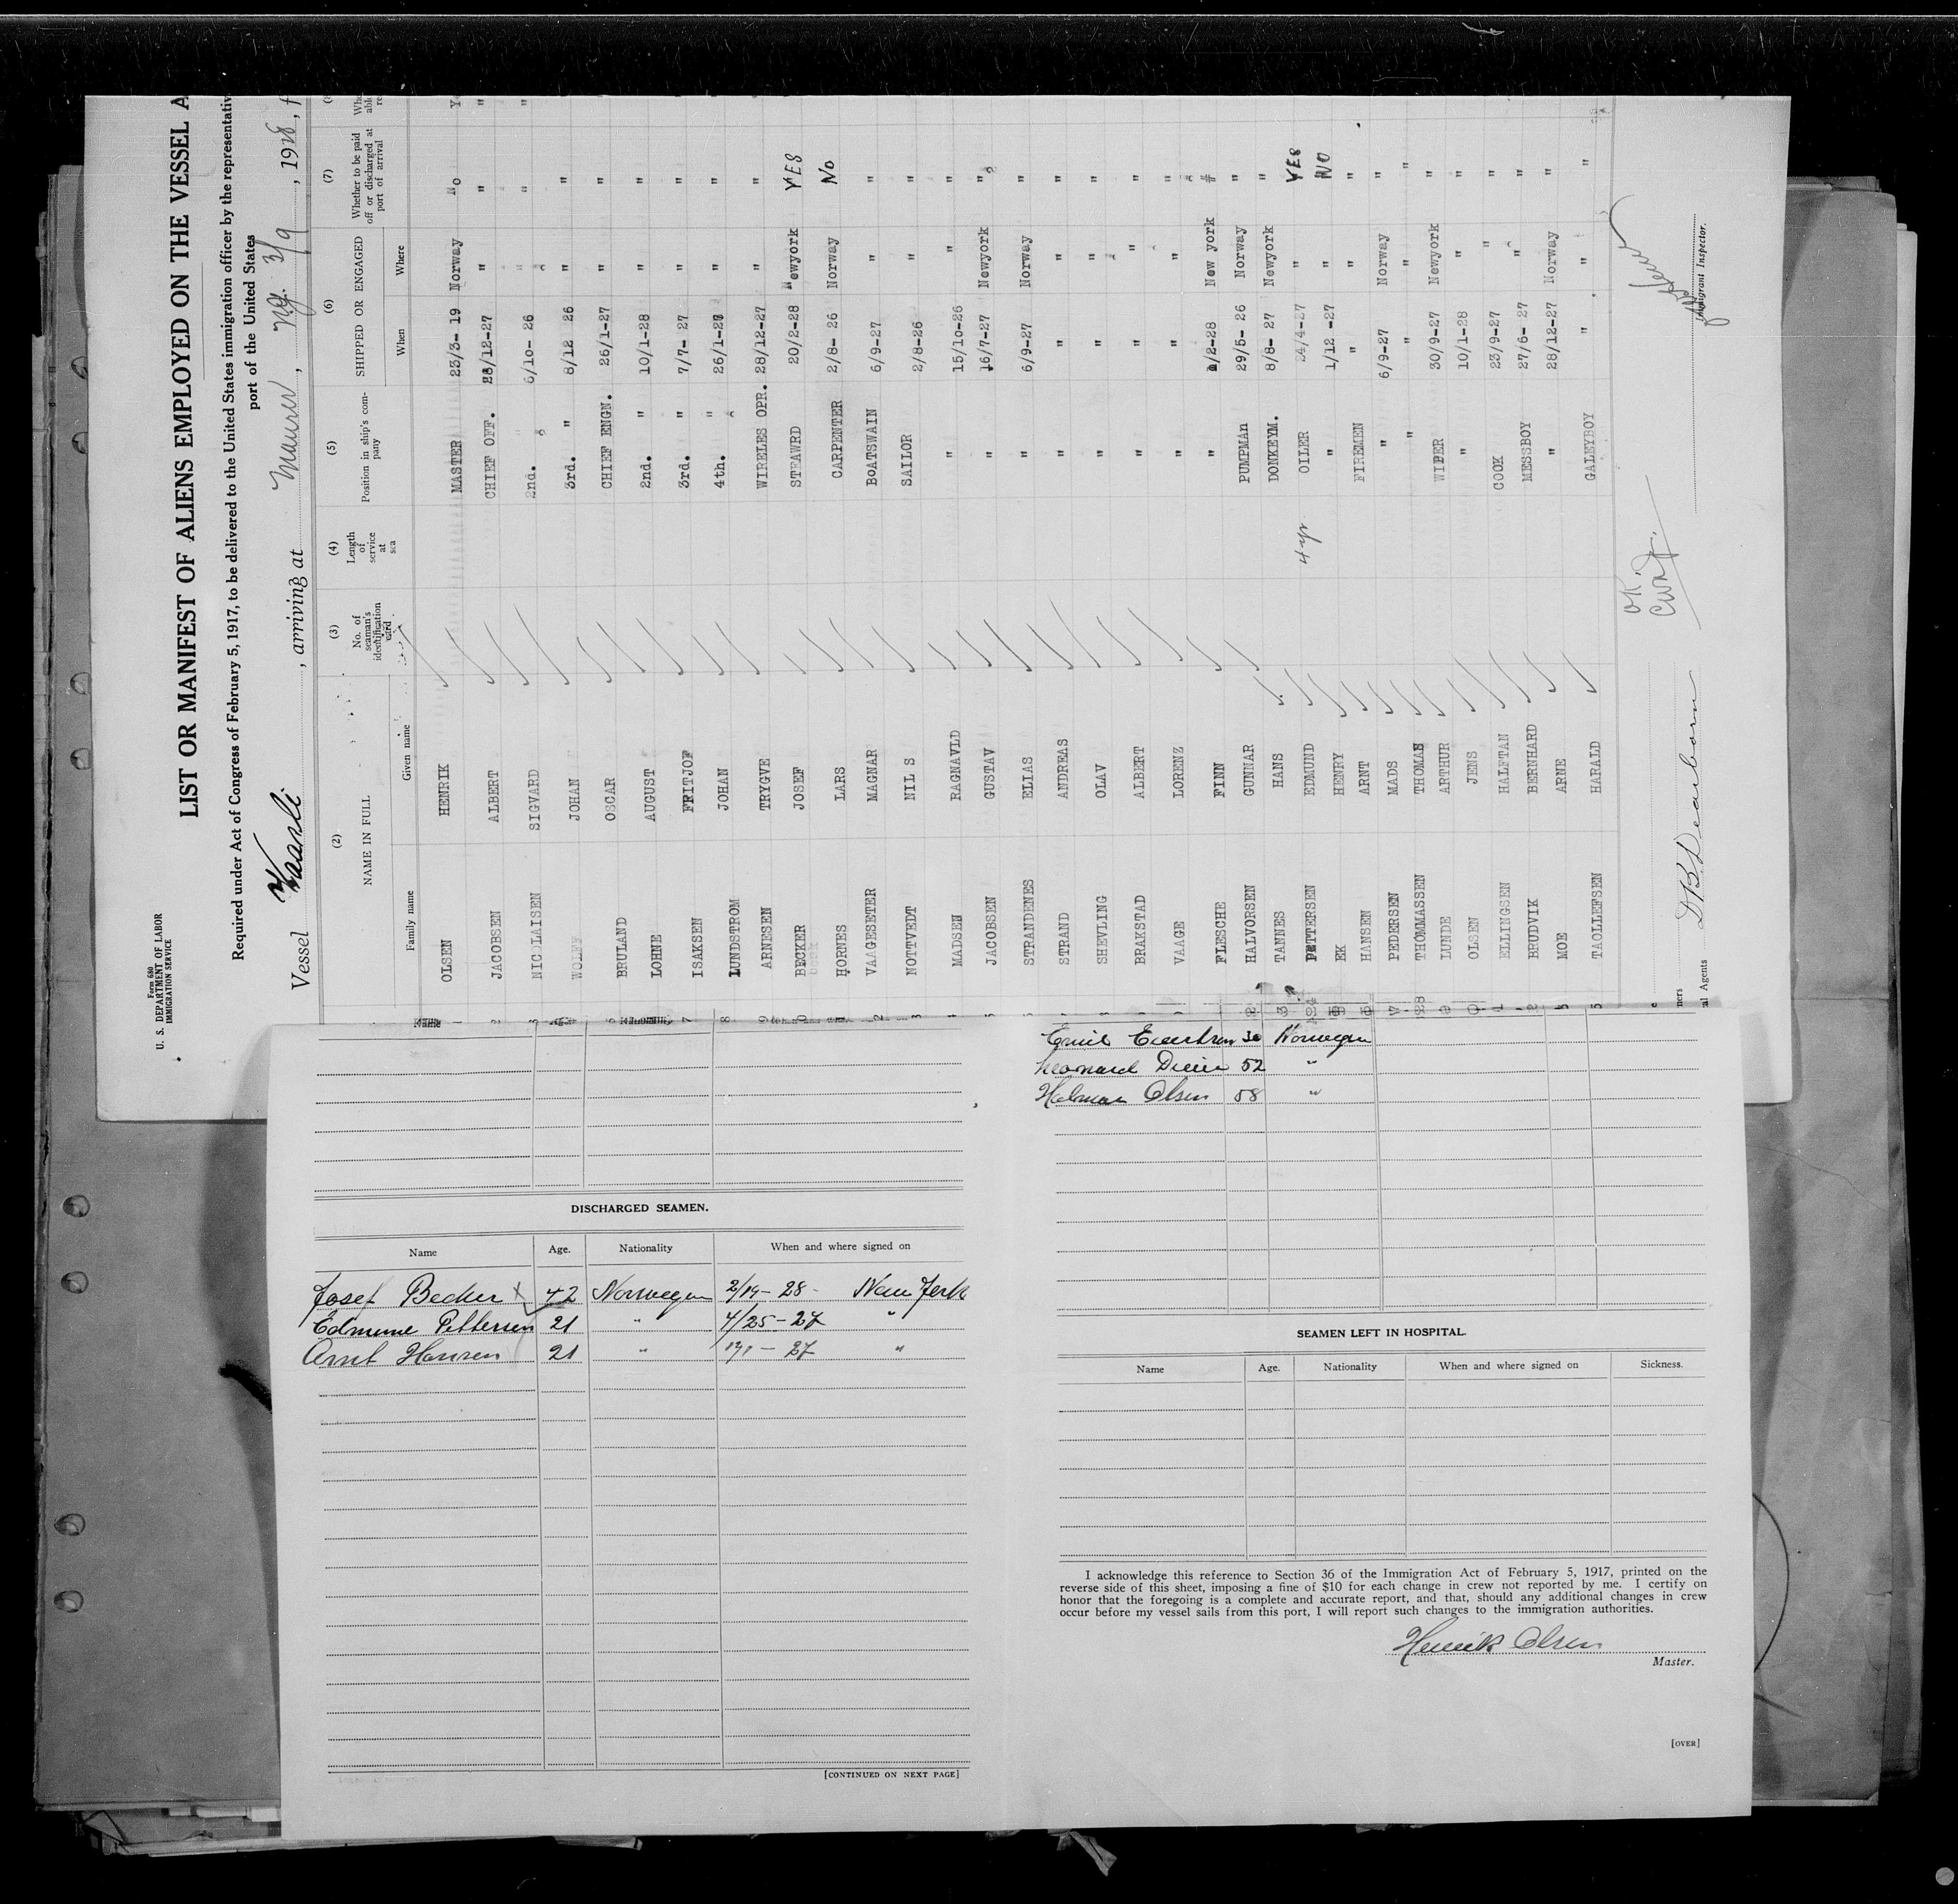 Form 680
U. S. DEPARTMENT OF LABOR
IMMIGRATION SERVICE
LIST OR MANIFEST OF ALIENS EMPLOYED ON THE VESSEL A
Required under Act of Congress of February 5, 1917, to be delivered to the United States immigration officer by the representativ
port of the United States
Vessel Vaarli, arriving at Maurer, N.J. 3/9, 1928, f
(2) (3) (4) (5) (6) (7)
NAME IN FULL No. of seaman's identification card Length of service at sea Position in ship's company SHIPPED OR ENGAGED Whether to be paid off or discharged at port of arrival
Family name Given name When Where
OLSEN HENRIK MASTER 23/3- 19 Norway No
JACOBSEN ALBERT CHIEF OFF. 28/12-27 " "
NICOLAISEN SIGVARD 2nd. " 6/10- 26 " "
WOLFF JOHAN 3rd. " 8/12 26 " "
BRULAND OSCAR CHIEF ENGN. 26/1-27 " "
LOHNE AUGUST 2nd. " 10/1-28 " "
ISAKSEN FRITJOF 3rd. " 7/7- 27 " "
LUNDSTROM JOHAN 4th. " 26/1-27 " "
ARNESEN TRYGVE WIRELES OPR. 28/12-27 " "
BECKER JOSEF STEAWRD 20/2-28 Newyork YES
HORNES LARS CARPENTER 2/8- 26 Norway NO
VAAGESETER MAGNAR BOATSWAIN 6/9-27 " "
NOTTVEDT NIL S SAILOR 2/8-26 " "
MADSEN RAGNAVLD " 15/10-26 " "
JACOBSEN GUSTAV " 16/7-27 Newyork "
STRANDENES ELIAS " 6/9-27 Norway "
STRAND ANDREAS " " " "
SHEVLING OLAV " " " "
BRAKSTAD ALBERT " " " "
VAAGE LORENZ " " " "
FLESCHE FINN " 1/2-28 New york "
HALVORSEN GUNNAR PUMPMAn 29/5- 26 Norway "
TANNES HANS DONKEYM. 8/8- 27 Newyork "
PETTERSEN EDMUND 4 yr. OILER 24/4-27 " YES
EK HENRY " 1/12 -27 " NO
HANSEN ARNT FIREMEN " " "
PEDERSEN MADS " 6/9-27 Norway "
THOMMASSEN THOMAS " " " "
LUNDE ARTHUR WIPER 30/9-27 Newyork "
OLSEN JENS " 10/1-28 " "
ELLINGSEN HALFTAN COOK 23/9-27 " "
BRUDVIK BERNHARD MESSBOY 27/6- 27 " "
MOE ARNE " 28/12-27 Norway "
TAOLLEFSEN HARALD GALEYBOY " " "
OK.
ners
al Agents D B Dearborn
Immigrant Inspector.
DISCHARGED SEAMEN.
Name Age. Nationality When and where signed on
Josef Becker x 42 Norwegen 2/19-28- New Jerk
Edmune Pettersen 21 " 4/25-27 "
Arnt Hansen 21 " 27 "
[CONTINUED ON NEXT PAGE]
Emil 30 Norwegen
Leonard 52 "
Halman Olsen 58 "
SEAMEN LEFT IN HOSPITAL.
Name Age. Nationality When and where signed on Sickness.
I acknowledge this reference to Section 36 of the Immigration Act of February 5, 1917, printed on the
reverse side of this sheet, imposing a fine of $10 for each change in crew not reported by me. I certify on
honor that the foregoing is a complete and accurate report, and that, should any additional changes in crew
occur before my vessel sails from this port, I will report such changes to the immigration authorities.
Henrik Olsen
Master.
[OVER]